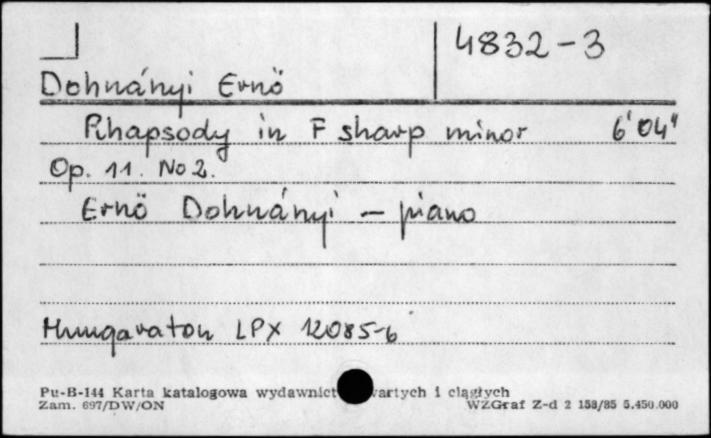 4832-3
Dohnányi Ernö
Rhapsody in F sharp minor 6'04"
Op. 11. No 2.
Ernö Dohnányi – piano
Hungaraton LPX 12085-6
Pu-B-144 Karta katalogowa wydawnict wartych i ciągłych
Zam. 697/DW/ON WZGraf Z-d 2 158/85 5.450.000